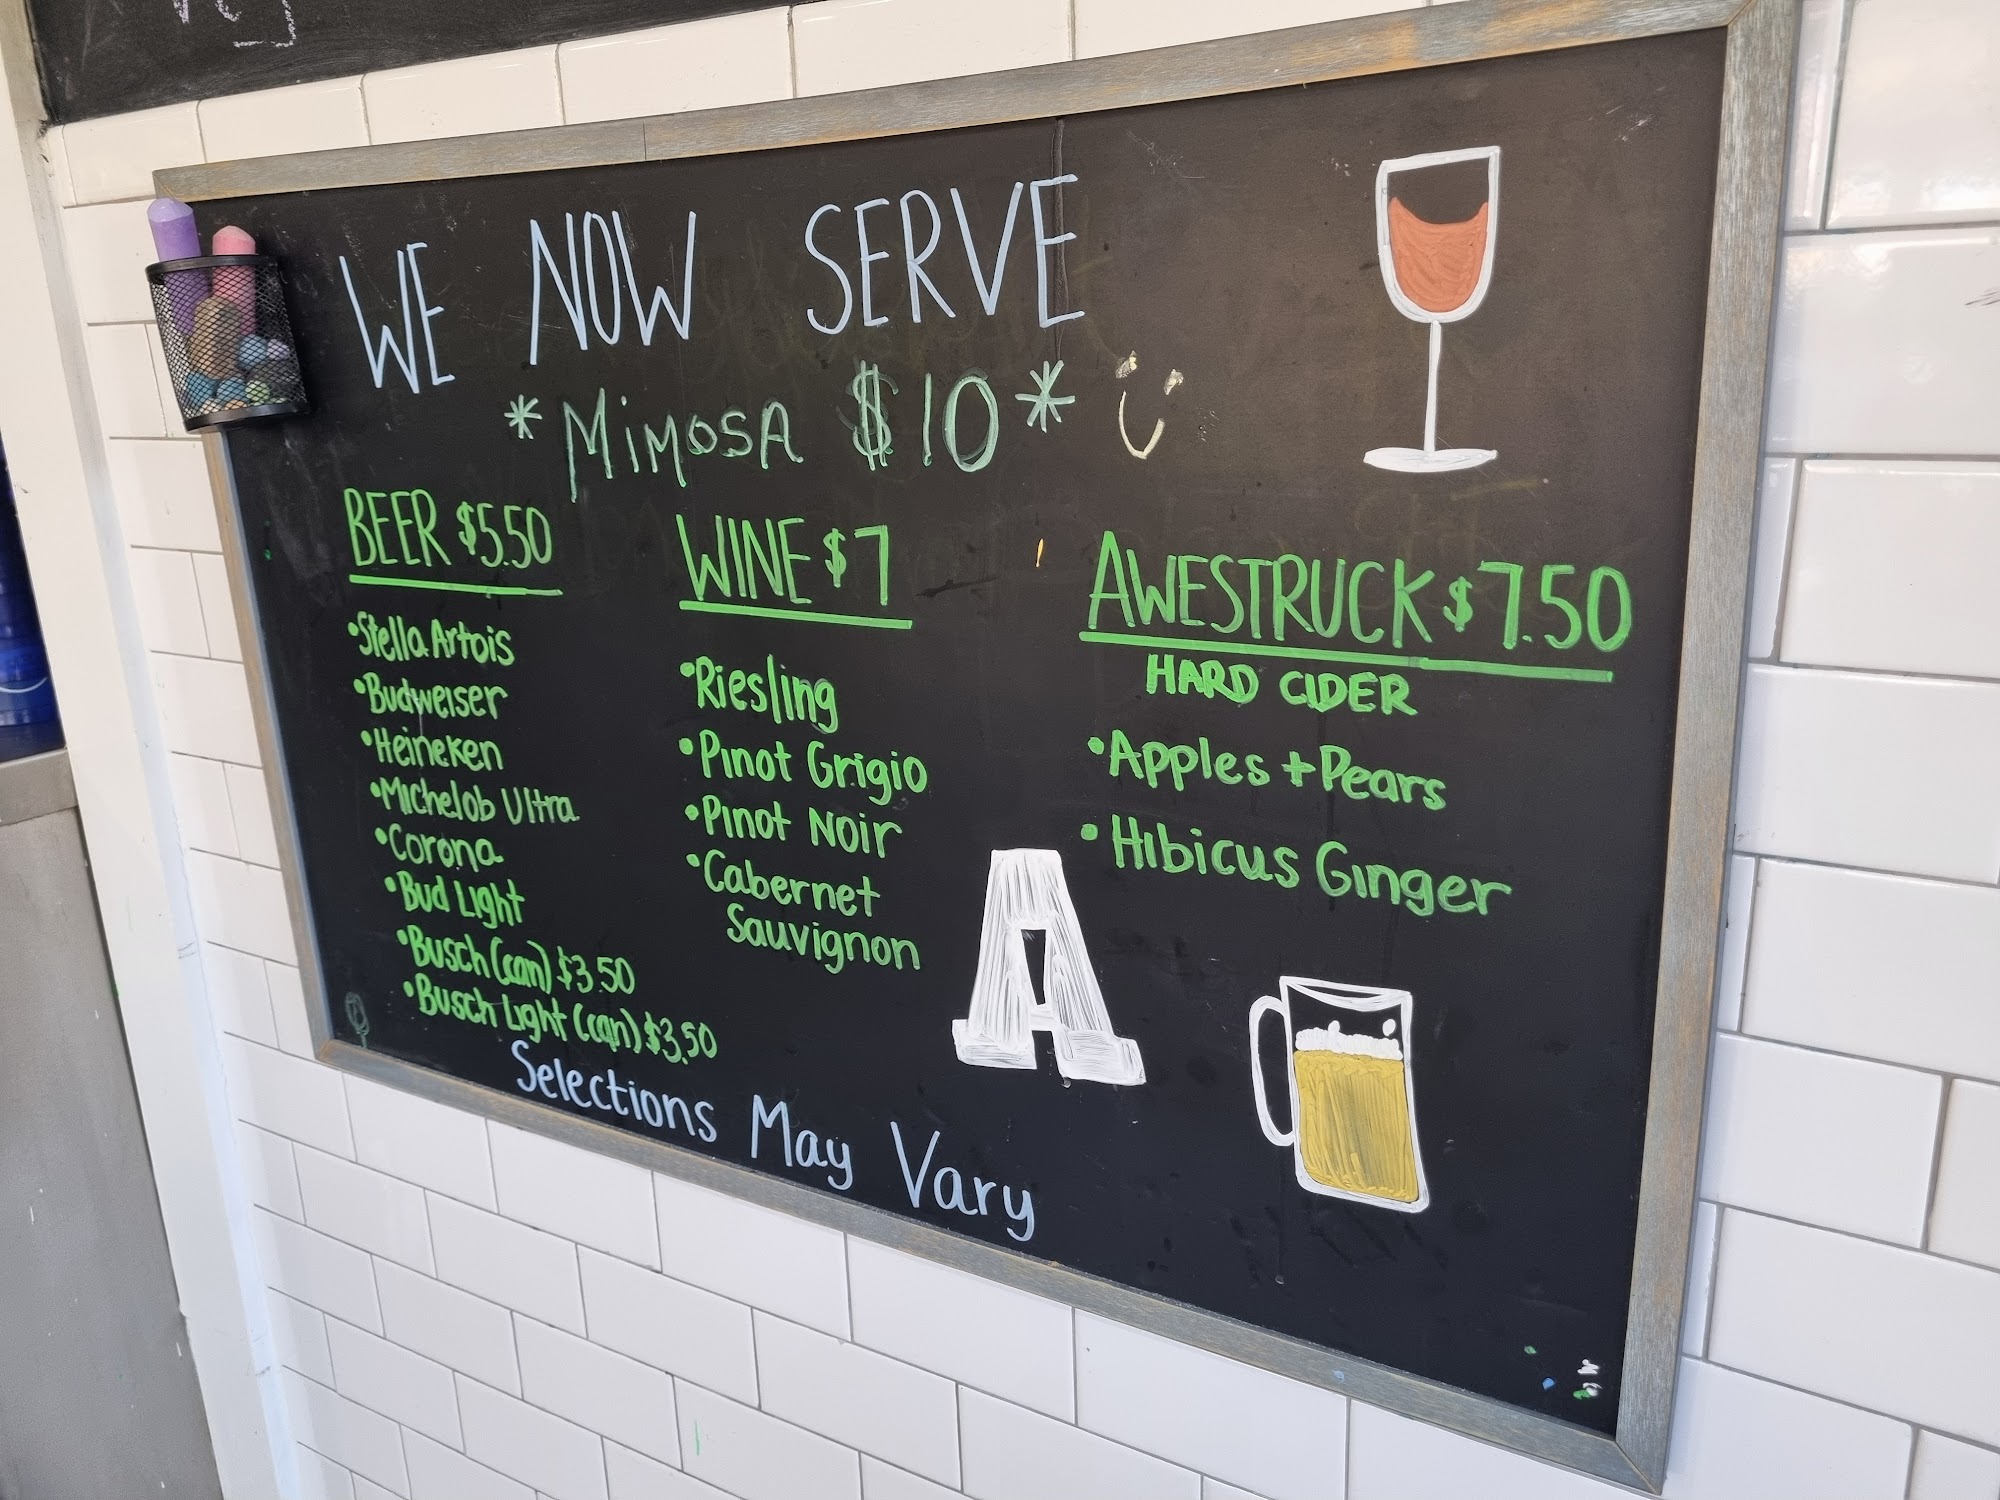 WE NOW SERVE
*Mimosa $10*
BEER $5.50
•Stella Artois
•Budweiser
•Heineken
•Michelob Ultra
•Corona
•Bud Light
•Busch (can) $3.50
•Busch Light (can) $3.50
WINE $7
•Riesling
•Pinot Grigio
•Pinot Noir
•Cabernet
Sauvignon
AWESTRUCK $7.50
HARD CIDER
•Apples + Pears
•Hibicus Ginger
A
Selections May Vary